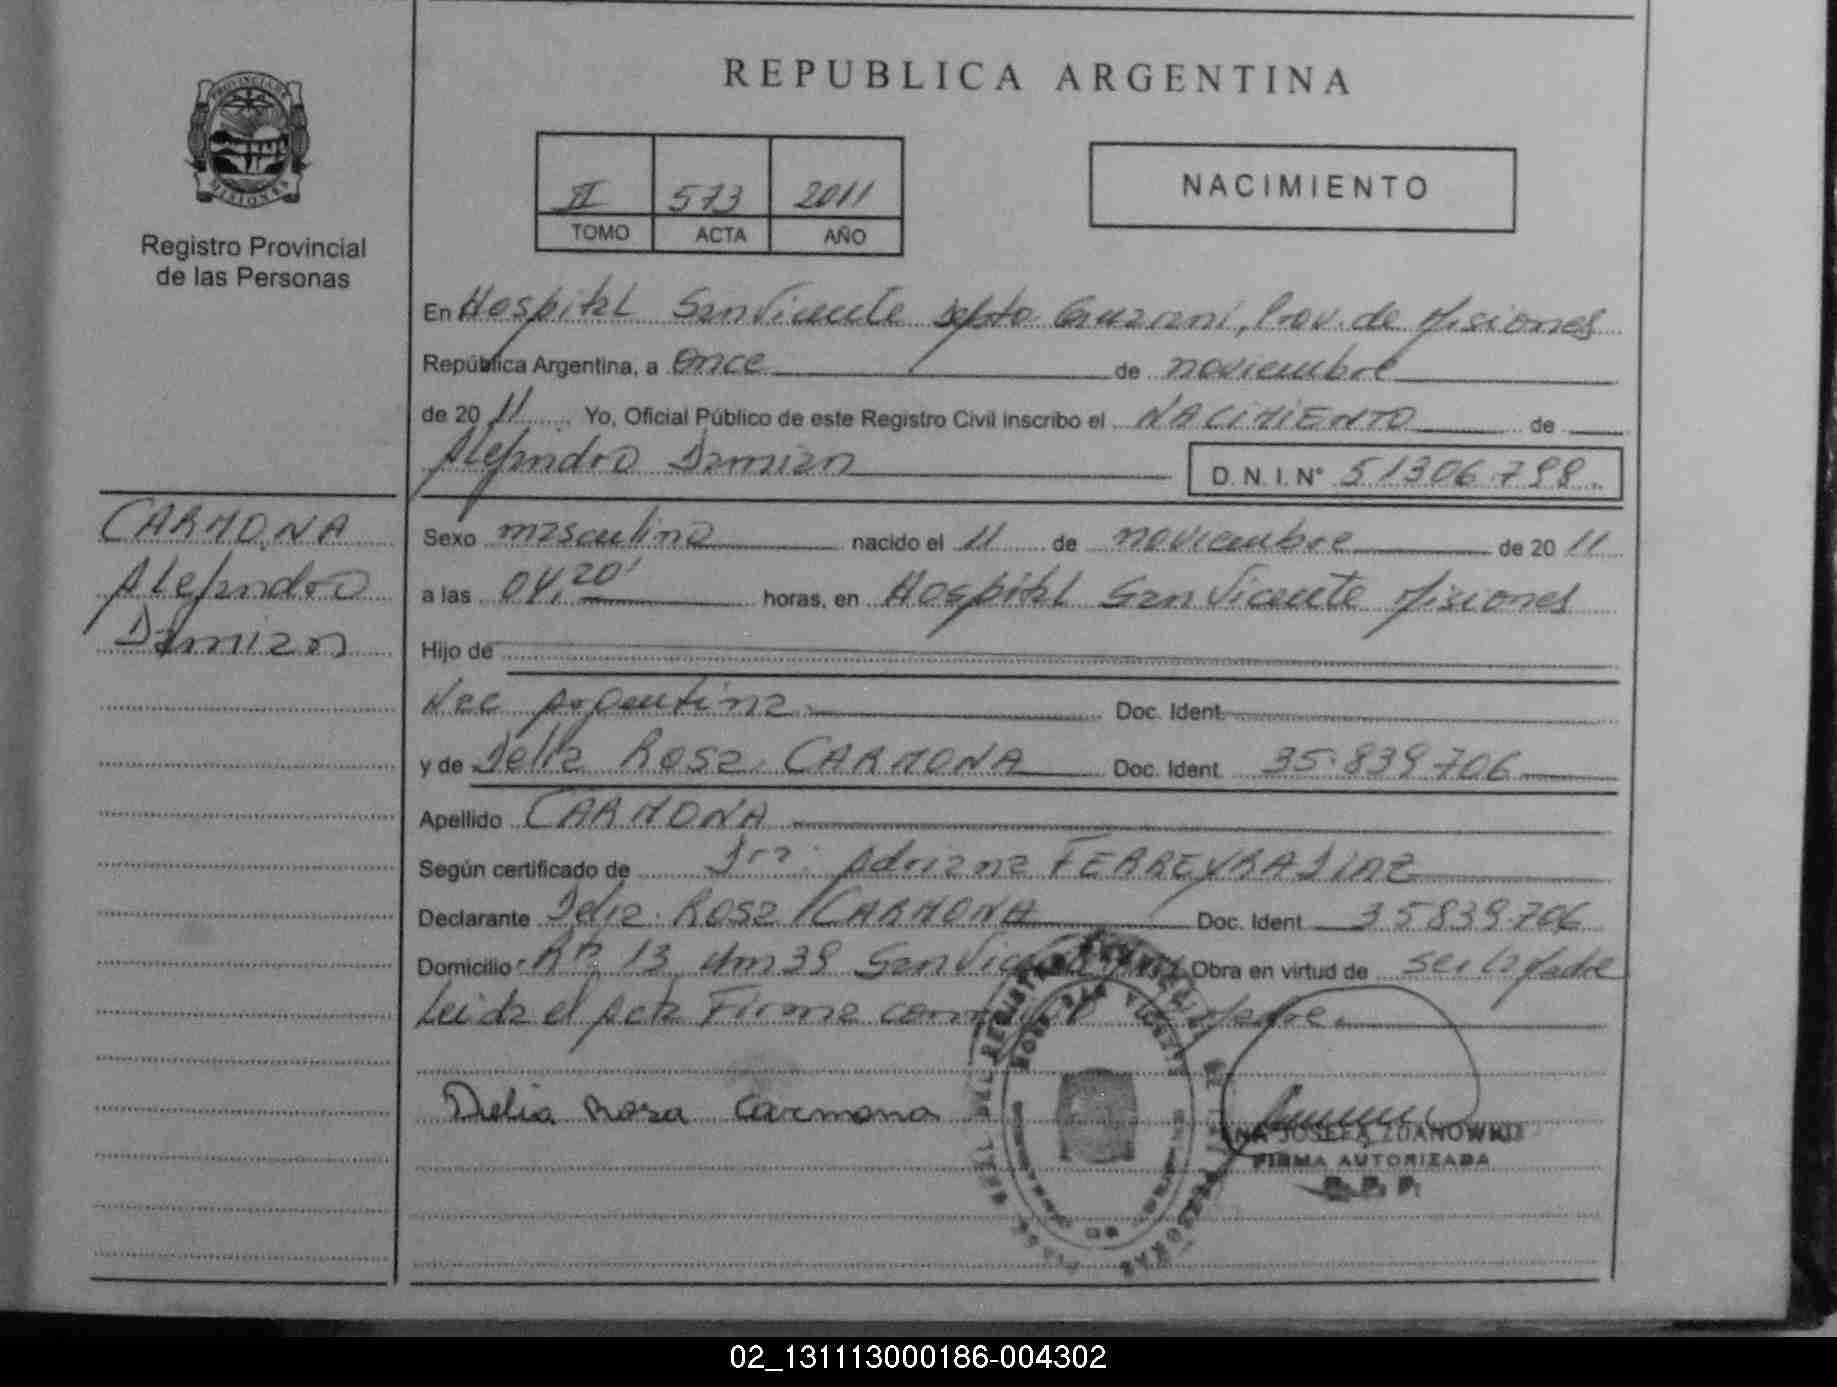 PROVINCIA DE
MISIONES
Registro Provincial
de las Personas
CARMONA
Alejandro
Damian
REPUBLICA ARGENTINA
II 573 2011
TOMO ACTA AÑO
NACIMIENTO
En Hospital San Vicente Depto Guarani, Prov. de Misiones
República Argentina, a once de noviembre
de 20 11 Yo, Oficial Público de este Registro Civil inscribo el NACIMIENTO de
Alejandro Damian D. N. I. N° 51306.799.
Sexo masculino nacido el 11 de noviembre de 20 11
a las 04,20' horas, en Hospital San Vicente Misiones
Hijo de
Nac argentina Doc. Ident.
y de Delia Rosa CARMONA Doc. Ident. 35.839.706
Apellido CARMONA
Según certificado de Dra: Adriana FERREYRA DIAZ
Declarante Delia Rosa CARMONA Doc. Ident. 35839.706
Domicilio Rta 13 Km 39 San Vicente Obra en virtud de ser la Madre
Leida el acta Firma Madre.
Delia Rosa Carmona
JOSEFA ZDANOWKIZ
FIRMA AUTORIZADA
R. P. P.
02_131113000186-004302